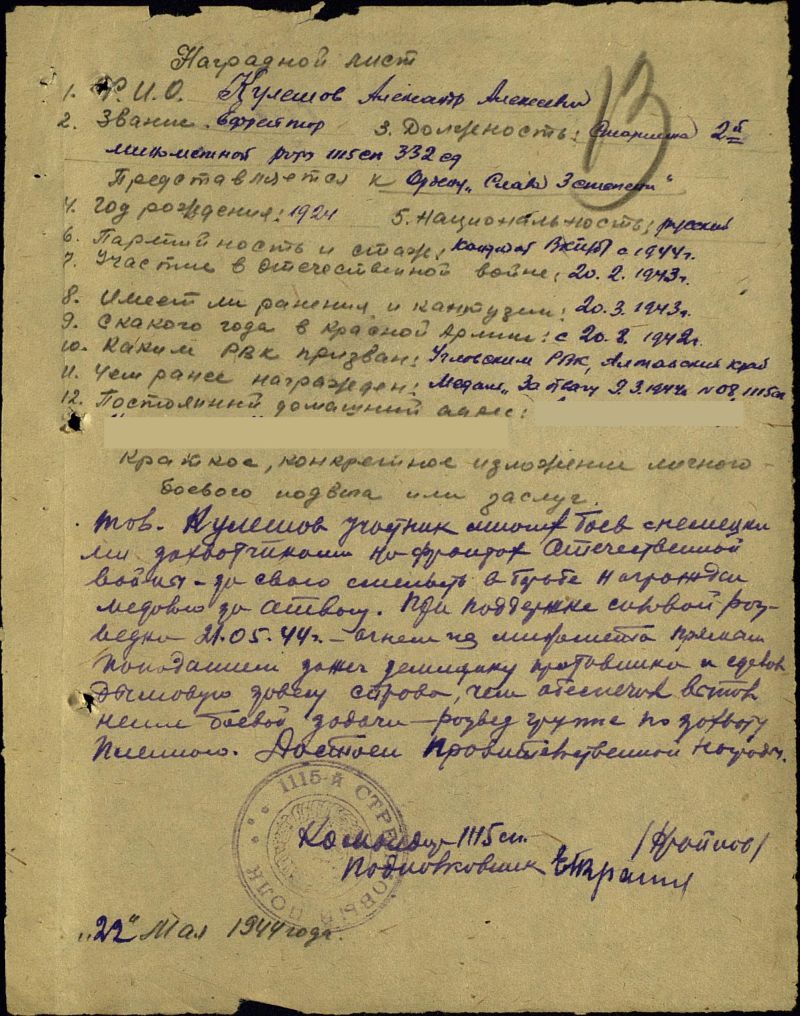 Наградной лист
13
1. Ф.И.О. Кулешов Александр Алексеевич
2. Звание: Ефрейтор 3. Должность: Старшина 2й
минометной роты 1115 сп 332 сд
Представляется к Ордену „Слава 3 степени"
4. Год рождения: 1924 5. Национальность: русский
6. Партийность и стаж: кандидат ВКП(б) с 1944 г.
7. Участие в отечественной войне: 20.2.1943 г.
8. Имеет ли ранения и кантузии: 20.3.1943 г.
9. С какого года в Красной Армии: с 20.8.1942 г.
10. Каким РВК призван: Угловским РВК, Алтайский край
11. Чем ранее награжден: Медаль „За отвагу 9.3.1944 г. №08, 1115 сп
12. Постоянный домашний адрес:
Краткое, конкретное изложение личного
боевого подвига или заслуг.
тов. Кулешов участник многих боев с немецки
ми захватчиками на фронтах Отечественной
войны – за свою смелость в борьбе награжден
медалью за отвагу. При поддержке силовой раз-
ведки 21.05.44 г. – огнем из миномета прямым
попаданием зажег противника и сделал
дымовую завесу, чем обеспечил выпол
нение боевой задачи – развед группе по захвату
пленного. Достоен Правительственной награды.
1115-й СТРЕЛКОВЫЙ ПОЛК
Командир 1115 сп.
Подполковник
„22" Мая 1944 года.